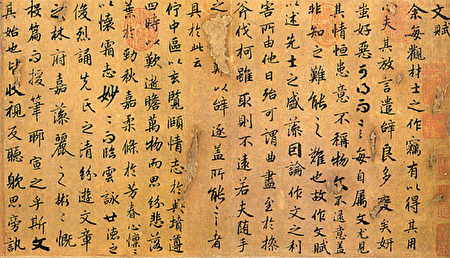 文賦
余每觀材士之作竊有以得其用
心夫其放言遣辭良多變矣妍
蚩好惡可得而言每自屬文尤見
其情恒患意不稱物文不逮意蓋
非知之難能之難也故作文賦
以述先士之盛藻因論作文之利
害所由他日殆可謂曲盡至於操
斧伐柯雖取則不遠若夫随手
之以辭逐蓋所能言之者
具於此云
佇中區以玄覽頤情志於典墳遵
四時以歎逝瞻萬物而思紛悲落
葉於勁秋嘉柔條於芳春心懍懍
以懷霜志眇眇而臨雲詠世德之
俊烈誦先民之清芬遊文章
之林府嘉藻麗之彬彬慨
投篇而援筆聊宣之乎斯文
其始也皆收視反聽耽思旁訊